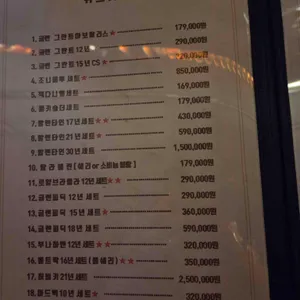 1. 글렌 그란트아보랄리스★ 179,000원
2. 글렌 그란트12년 290,000원
3. 글렌 그란트15년CS★
4. 조니블루세트 850,000원
5. 잭다니엘세트 169,000원
6. 몽키숄더세트 179,000원
7. 발렌타인17년세트★★ 430,000원
8. 발렌타인21년세트 590,000원
9. 발렌타인30년세트 1,500,000원
10. 탐라엘렌 (쉐리or스모키 몰트) 179,000원
11. 로얄브라클라12년세트★★ 290,000원
12. 글렌피딕 12년 세트 290,000원
13. 글렌피딕 15년 세트★ 360,000원
14. 글렌피딕 18년 세트 590,000원
15. 부나하벤12년세트★★ 320,000원
16. 몰트락16년세트(풀쉐리)★ 350,000원
17. 로얄 21년세트 2,500,000원
18. 하드백10년 세트★ 320,000원